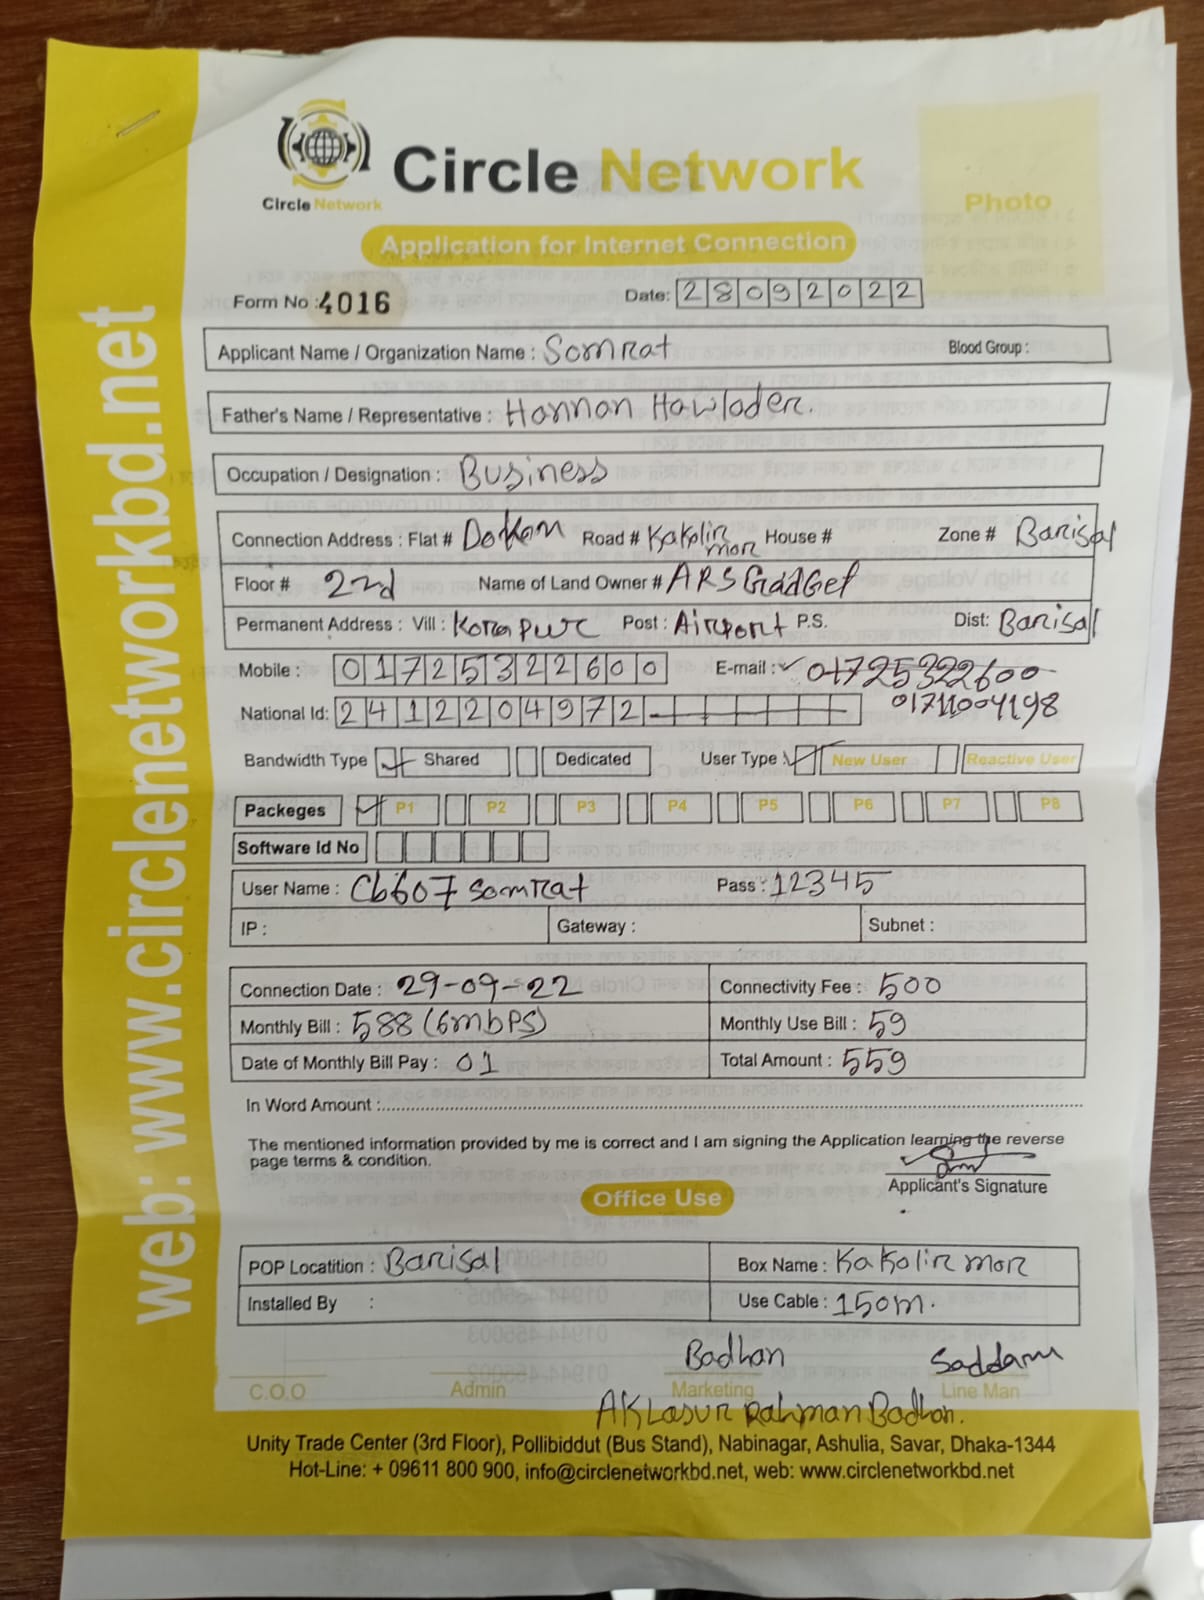 Circle Network
Circle Network
Photo
Application for Internet Connection
Form No : 4016
Date: 28092022
Applicant Name / Organization Name : Somrat
Blood Group :
Father's Name / Representative : Hannan Howlader.
Occupation / Designation : Business
Connection Address : Flat # Dokan Road # Kakolir mor House # Zone # Barisal
Floor # 2nd Name of Land Owner # ARS GadGet
Permanent Address : Vill : Korapur Post : Airport P.S. Dist: Barisal
Mobile : 01725322600 E-mail : 01725322600
01711004198
National Id: 2412204972
Bandwidth Type Shared Dedicated User Type : New User Reactive User
Packeges P1 P2 P3 P4 P5 P6 P7 P8
Software Id No
User Name : Cb607 somrat Pass : 12345
IP : Gateway : Subnet :
Connection Date : 29-09-22 Connectivity Fee : 500
Monthly Bill : 588 (6mbps) Monthly Use Bill : 59
Date of Monthly Bill Pay : 01 Total Amount : 559
In Word Amount :
The mentioned information provided by me is correct and I am signing the Application learning the reverse
page terms & condition.
Applicant's Signature
Office Use
POP Locatition : Barisal Box Name : Kakolir mor
Installed By : Use Cable : 150m.
Badhan Saddam
C.O.O Admin Marketing Line Man
AKLasur Rahman Badhan.
Unity Trade Center (3rd Floor), Pollibiddut (Bus Stand), Nabinagar, Ashulia, Savar, Dhaka-1344
Hot-Line: + 09611 800 900, info@circlenetworkbd.net, web: www.circlenetworkbd.net
web: www.circlenetworkbd.net